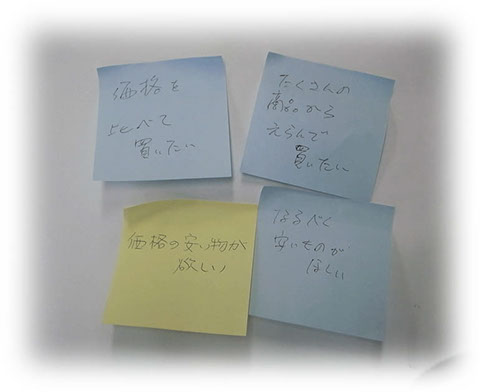 価格を
比べて
買いたい
たくさんの
商品から
えらんで
買いたい
価格の安い物が
欲しい
なるべく
安いものが
ほしい